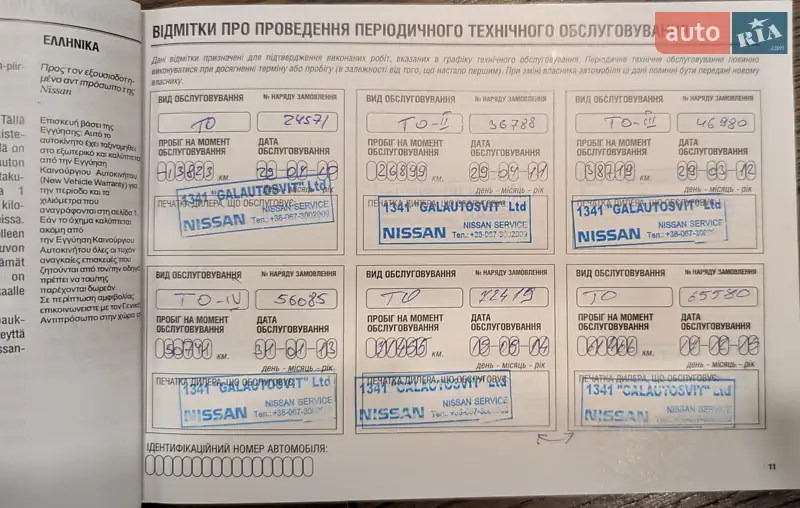 ΕΛΛΗΝΙΚΑ
Προς τον εξουσιοδοτη-
μένο αντιπρόσωπο της
Nissan
Επισκευή βάσει της
Εγγύησης: Αυτό το
αυτοκίνητο έχει ταξινομηθεί
στο εξωτερικό και καλύπτεται
από την Εγγύηση
Καινούργιου Αυτοκινήτου
(New Vehicle Warranty) για
την περίοδο και τα
χιλιόμετρα που
αναγράφονται στη σελίδα 1.
Εάν το όχημα καλύπτεται
ακόμη από
την Εγγύηση Καινούργιου
Αυτοκινήτου όλες οι τυχόν
αναγκαίες επισκευές που
ζητούνται από τον/την οδηγό
πρέπει να του/της
παρέχονται δωρεάν.
Σε περίπτωση αμφιβολίας
επικοινωνείστε με τον Γενικό
Αντιπρόσωπο στην χώρα σ
ВІДМІТКИ ПРО ПРОВЕДЕННЯ ПЕРІОДИЧНОГО ТЕХНІЧНОГО ОБСЛУГОВУВА
auto RIA .com
Дані відмітки призначені для підтвердження виконаних робіт, вказаних в графіку технічного обслуговування. Періодичне технічне обслуговування повинно
виконуватися при досягненні терміну або пробігу (в залежності від того, що настало першим). При зміні власника автомобіля ці дані повинні бути передані новому
власнику.
ВИД ОБСЛУГОВУВАННЯ № НАРЯДУ ЗАМОВЛЕННЯ
ТО 24571
ПРОБІГ НА МОМЕНТ ОБСЛУГОВУВАННЯ ДАТА ОБСЛУГОВУВАННЯ
13823 км.
1341 "GALAUTOSVIT" Ltd
NISSAN NISSAN SERVICE
Тел.: +38-067-3002009
ВИД ОБСЛУГОВУВАННЯ № НАРЯДУ ЗАМОВЛЕННЯ
ТО-II 36788
ПРОБІГ НА МОМЕНТ ОБСЛУГОВУВАННЯ ДАТА ОБСЛУГОВУВАННЯ
26899 км. 29-04-11
день - місяць - рік
1341 "GALAUTOSVIT" Ltd
NISSAN NISSAN SERVICE
Тел.: +38-067-3002009
ВИД ОБСЛУГОВУВАННЯ № НАРЯДУ ЗАМОВЛЕННЯ
ТО-III 46980
ПРОБІГ НА МОМЕНТ ОБСЛУГОВУВАННЯ ДАТА ОБСЛУГОВУВАННЯ
38719 км. 29-03-12
день - місяць - рік
1341 "GALAUTOSVIT" Ltd
NISSAN NISSAN SERVICE
Тел.: +38-067-300
ВИД ОБСЛУГОВУВАННЯ № НАРЯДУ ЗАМОВЛЕННЯ
ТО-IV 56085
ПРОБІГ НА МОМЕНТ ОБСЛУГОВУВАННЯ ДАТА ОБСЛУГОВУВАННЯ
50791 км. 31-01-13
день - місяць - рік
ПЕЧАТКА ДИЛЕРА, ЩО ОБСЛУГОВУЄ:
1341 "GALAUTOSVIT" Ltd
NISSAN NISSAN SERVICE
ВИД ОБСЛУГОВУВАННЯ № НАРЯДУ ЗАМОВЛЕННЯ
ТО 72419
ПРОБІГ НА МОМЕНТ ОБСЛУГОВУВАННЯ ДАТА ОБСЛУГОВУВАННЯ
км.
день - місяць - рік
ПЕЧАТКА ДИЛЕРА, ЩО ОБСЛУГОВУЄ:
1341 "GALAUTOSVIT" Ltd
NISSAN NISSAN SERVICE
ВИД ОБСЛУГОВУВАННЯ № НАРЯДУ ЗАМОВЛЕННЯ
ТО 65580
ПРОБІГ НА МОМЕНТ ОБСЛУГОВУВАННЯ ДАТА ОБСЛУГОВУВАННЯ
км.
день - місяць - рік
ПЕЧАТКА ДИЛЕРА, ЩО ОБСЛУГОВУЄ:
1341 "GALAUTOSVIT" Ltd
NISSAN NISSAN SERVICE
ІДЕНТИФІКАЦІЙНИЙ НОМЕР АВТОМОБІЛЯ:
11